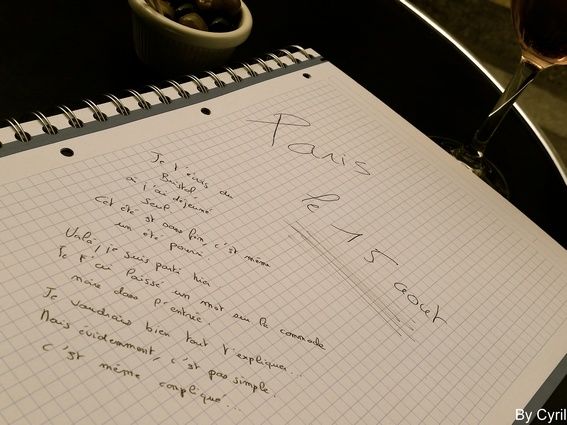 Paris
le 15 août
Je t'écris du
Bristol
où j'ai déjeuné
seul.
Cet été est sans fin, c'est même
un été pourri
Voilà, je suis parti hier
Je t'ai laissé un mot sur la commode
noire dans l'entrée.
Je voudrais bien tout t'expliquer...
Mais évidemment, c'est pas simple.
C'est même compliqué...
By Cyril